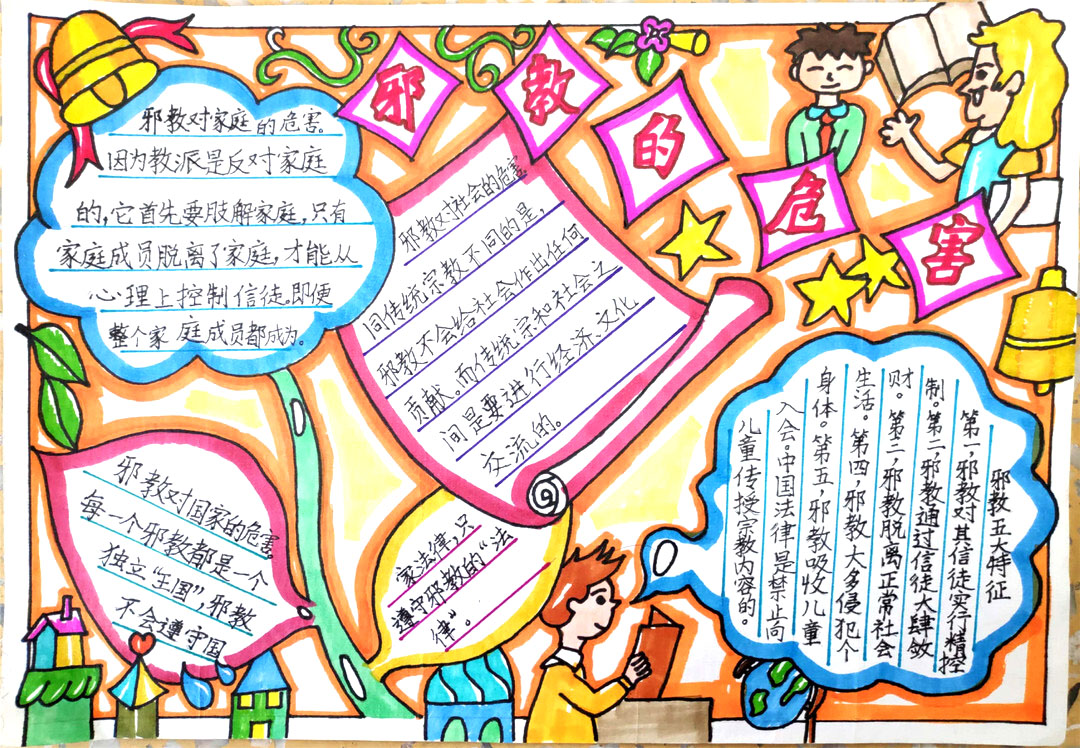 邪教的危害
邪教对家庭的危害。
因为教派是反对家庭
的,它首先要肢解家庭,只有
家庭成员脱离了家庭,才能从
心理上控制信徒。即便
整个家庭成员都成为。
邪教对社会的危害
同传统宗教不同的是,
邪教不会给社会作出任何
贡献。而传统宗和社会之
间是要进行经济、文化
交流的。
邪教对国家的危害
每一个邪教都是一个
独立“王国”,邪教
不会遵守国
家法律,只
遵守邪教的“法
律”。
邪教五大特征
第一,邪教对其信徒实行精控
制。第二,邪教通过信徒大肆敛
财。第三,邪教脱离正常社会
生活。第四,邪教大多侵犯个
身体。第五,邪教吸收儿童
入会。中国法律是禁止向
儿童传授宗教内容的。